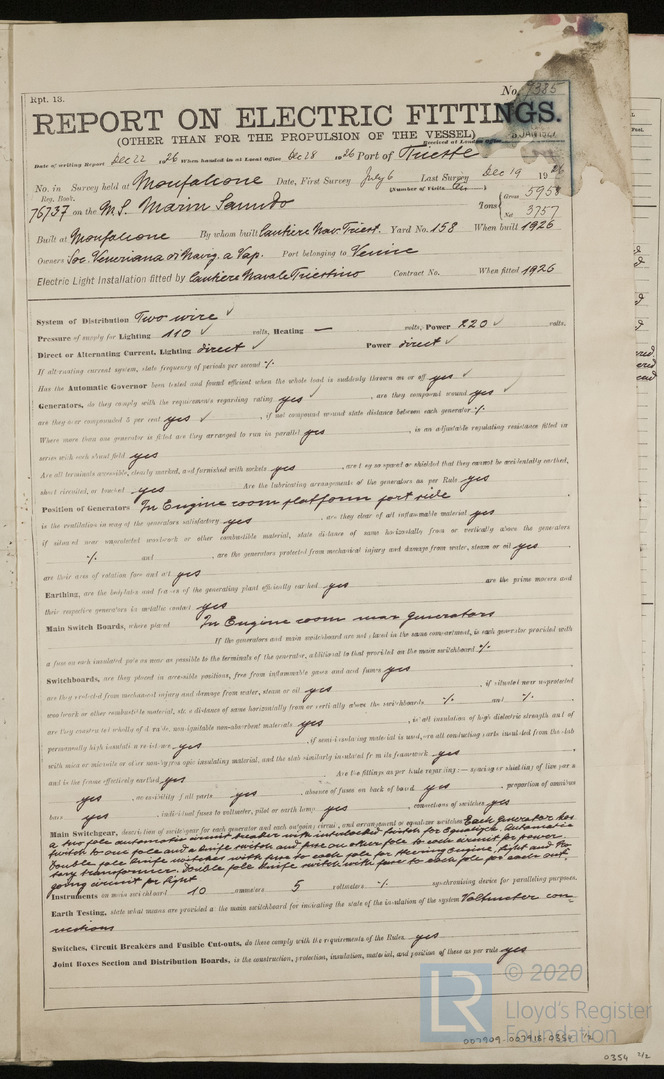 Rpt. 13.
No. 7385
REPORT ON ELECTRIC FITTINGS.
(OTHER THAN FOR THE PROPULSION OF THE VESSEL)
Received at London Office
Date of writing Report Dec 22 1926 When handed in at Local Office Dec 28 1926 Port of Trieste
No. in Survey held at Monfalcone Date, First Survey July 6 Last Survey Dec 19 1926
Reg. Book. (Number of Visits
76737 on the M.S. Marin Sanudo Tons { Gross 5958
Net 3757
Built at Monfalcone By whom built Cantiere Nav. Triest. Yard No. 158 When built 1926
Owners Soc. Veneziana di Navig. a Vap. Port belonging to Venice
Electric Light Installation fitted by Cantiere Navale Triestino Contract No. When fitted 1926
System of Distribution Two wire ✓
Pressure of supply for Lighting 110 ✓ volts, Heating — volts, Power 220 ✓ volts.
Direct or Alternating Current, Lighting direct ✓ Power direct ✓
If alternating current system, state frequency of periods per second ·/.
Has the Automatic Governor been tested and found efficient when the whole load is suddenly thrown on or off yes ✓
Generators, do they comply with the requirements regarding rating yes ✓, are they compound wound yes ✓
are they over compounded 5 per cent yes ✓, if not compound wound state distance between each generator ·/.
Where more than one generator is fitted are they arranged to run in parallel yes, is an adjustable regulating resistance fitted in
series with each shunt field yes
Are all terminals accessible, clearly marked, and furnished with sockets yes, are they so spaced or shielded that they cannot be accidentally earthed,
short circuited, or touched yes Are the lubricating arrangements of the generators as per Rule yes
Position of Generators In Engine room platform port side
is the ventilation in way of the generators satisfactory yes, are they clear of all inflammable material yes
if situated near unprotected woodwork or other combustible material, state distance of same horizontally from or vertically above the generators
·/. and , are the generators protected from mechanical injury and damage from water, steam or oil yes
are their axes of rotation fore and aft yes
Earthing, are the bedplates and frames of the generating plant efficiently earthed yes are the prime movers and
their respective generators in metallic contact yes
Main Switch Boards, where placed In Engine room near generators
If the generators and main switchboard are not placed in the same compartment, is each generator provided with
a fuse on each insulated pole as near as possible to the terminals of the generator, additional to that provided on the main switchboard ·/.
Switchboards, are they placed in accessible positions, free from inflammable gases and acid fumes yes
are they protected from mechanical injury and damage from water, steam or oil yes, if situated near unprotected
woodwork or other combustible material, state distance of same horizontally from or vertically above the switchboards ·/. and ·/.
are they constructed wholly of durable, non-ignitable non-absorbent materials yes, is all insulation of high dielectric strength and of
permanently high insulation resistance yes, if semi-insulating material is used, are all conducting parts insulated from the slab
with mica or micanite or other non-hygroscopic insulating material, and the slab similarly insulated from its framework yes
and is the frame effectively earthed yes Are the fittings as per Rule regarding:— spacing or shielding of live parts
yes, accessibility of all parts yes, absence of fuses on back of board yes, proportion of omnibus
bars yes, individual fuses to voltmeter, pilot or earth lamp yes, connections of switches yes
Main Switchgear, description of switchgear for each generator and each outgoing circuit, and arrangement of equalizer switches Each generator has
a two pole automatic circuit breaker with interlocked switch for Equalizer. Automatic
switch to one pole and a knife switch and fuse on other pole to each circuit for power.
Double pole knife switches with fuse to each pole for steering engine, light and Ro-
tary transformer. Double pole knife switch with fuse to each pole for each out-
going circuit for light
Instruments on main switchboard 10 ammeters 5 voltmeters ·/. synchronising device for paralleling purposes.
Earth Testing, state what means are provided at the main switchboard for indicating the state of the insulation of the system Voltmeter con-
nections
Switches, Circuit Breakers and Fusible Cut-outs, do these comply with the requirements of the Rules yes
Joint Boxes Section and Distribution Boards, is the construction, protection, insulation, material, and position of these as per rule yes
LR © 2020
Lloyd's Register
Foundation
007909-007918-0354 1/2
0354 2/2